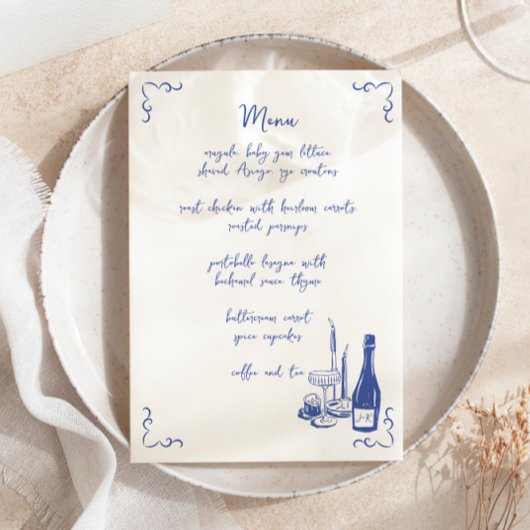 Menu
arugula, baby gem lettuce,
shaved Asiago, rye croutons
roast chicken with heirloom carrots,
roasted parsnips
portobello lasagna with
bechamel sauce, thyme
buttercream carrot
spice cupcakes
coffee and tea
J+R